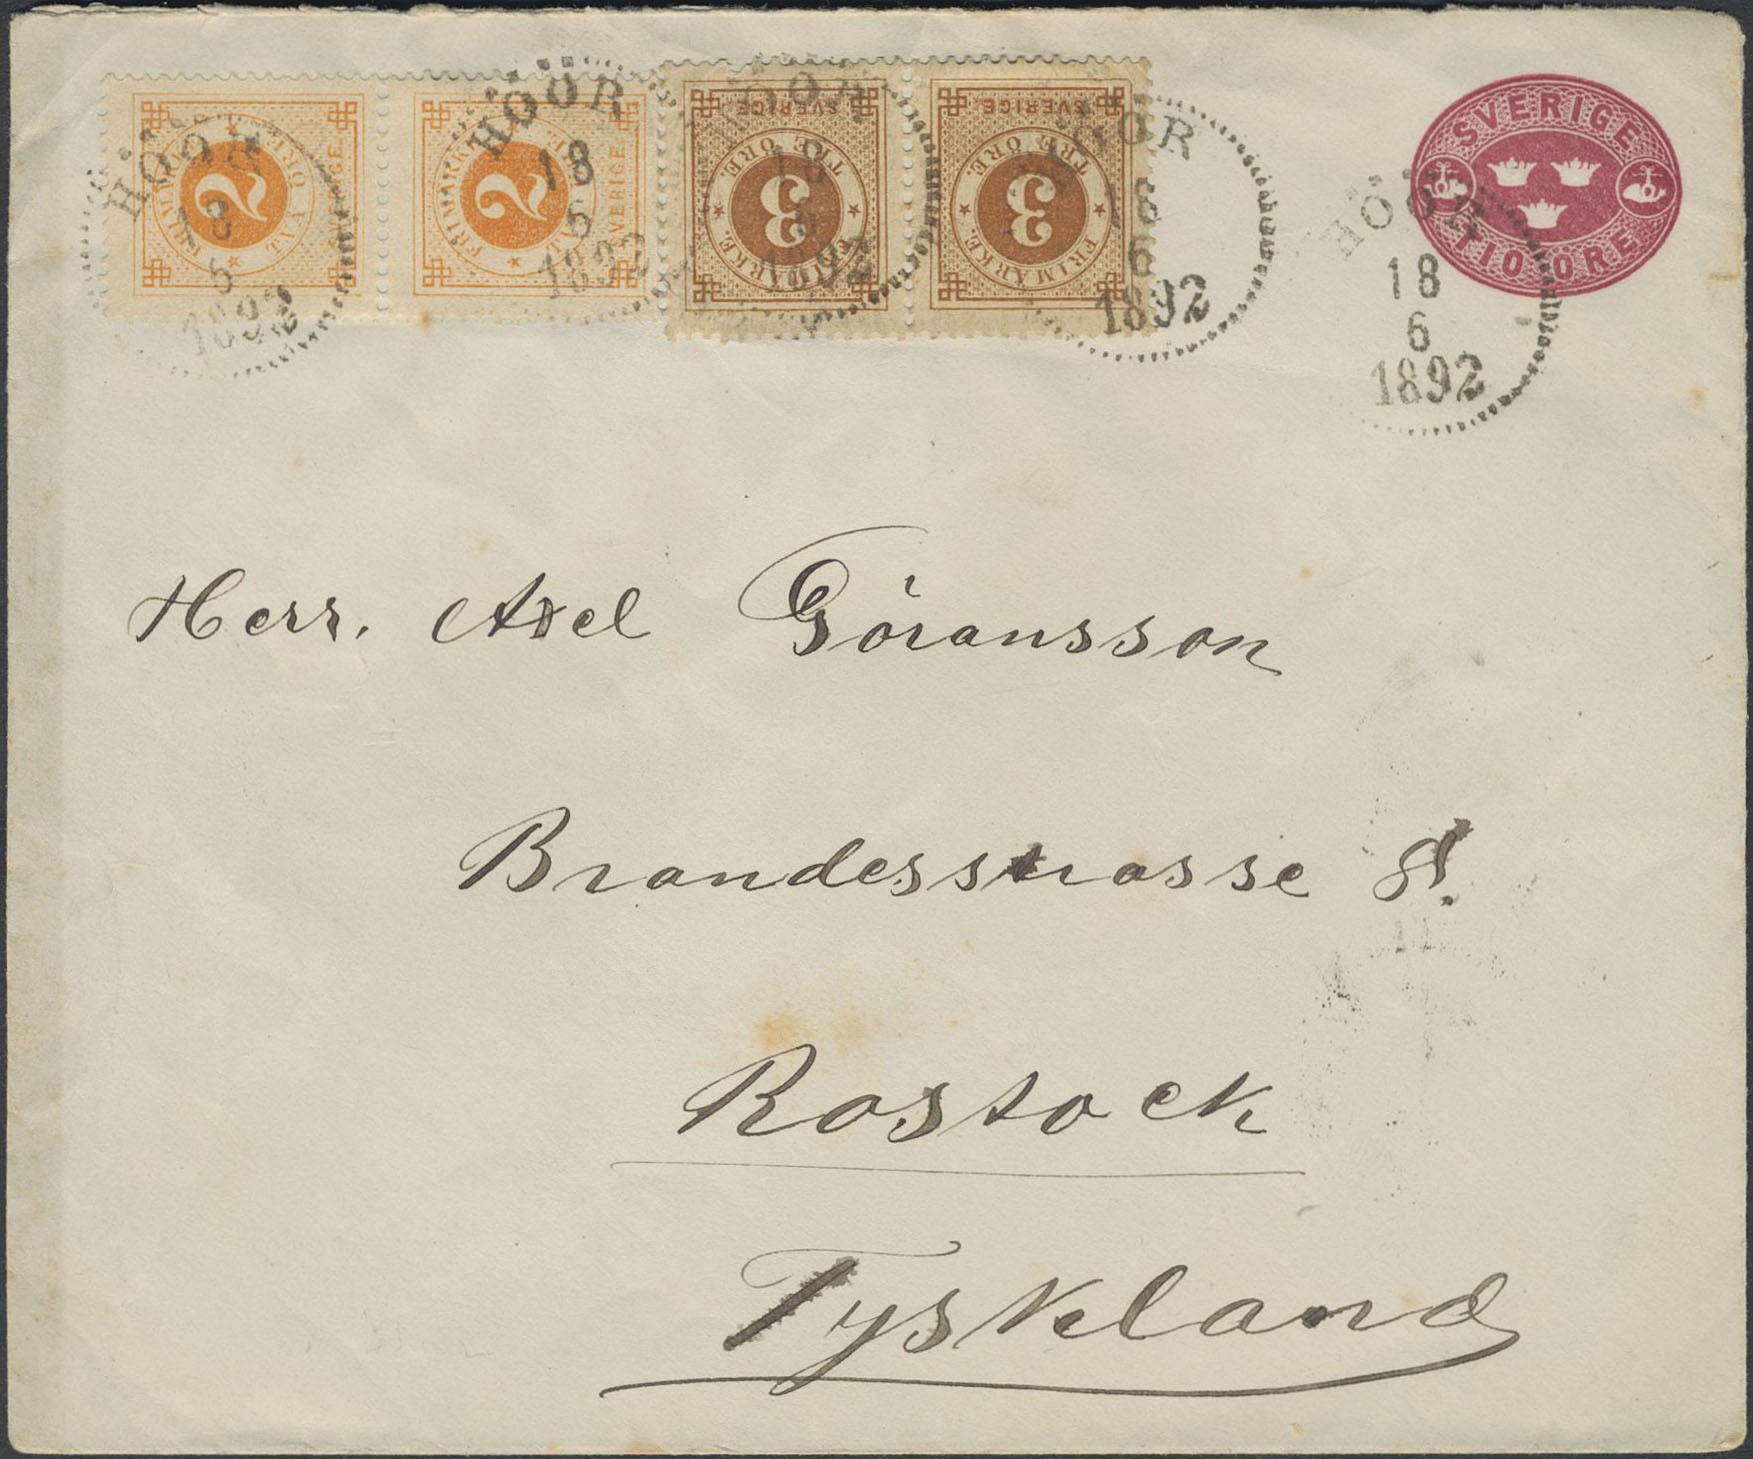 FRIMÄRKE. TVÅ ÖRE. SVERIGE. 2
FRIMÄRKE. TVÅ ÖRE. SVERIGE. 2
SVERIGE. FRIMÄRKE. TRE ÖRE. 3
SVERIGE. FRIMÄRKE. TRE ÖRE. 3
SVERIGE
TIO ÖRE
HÖÖR
18
6
1892
HÖÖR
18
6
1892
HÖÖR
18
6
1892
HÖÖR
18
6
1892
HÖÖR
18
6
1892
Herr. Axel Göransson
Brandesstrasse 8!
Rostock
Tyskland